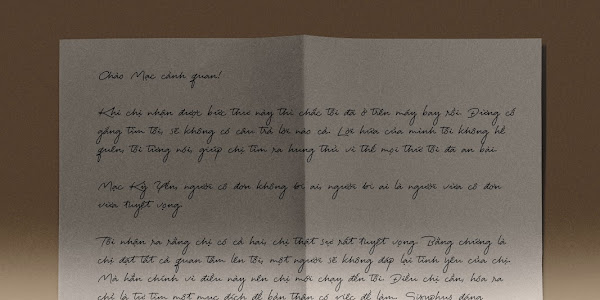 Chào Mạc cảnh quan!
Khi chị nhận được bức thư này thì chắc tôi đã ở trên máy bay rồi. Đừng cố
gắng tìm tôi, sẽ không có câu trả lời nào cả. Lời hứa của mình tôi không hề
quên, tôi từng nói, giúp chị tìm ra hung thủ, vì thế mọi thứ tôi đã an bài.
Mạc Kỳ Yển, người cô đơn không bi ai, người bi ai là người vừa cô đơn
vừa tuyệt vọng.
Tôi nhận ra rằng chị có cả hai, chị thật sự rất tuyệt vọng. Bằng chứng là
chị đặt tất cả quan tâm lên tôi, một người sẽ không đáp lại tình yêu của chị.
Mà hẳn chính vì điều này nên chị mới chạy đến tôi. Điều chị cần, hóa ra
chỉ là tự tìm một mục đích để bản thân có việc để làm. Sisyphus đáng